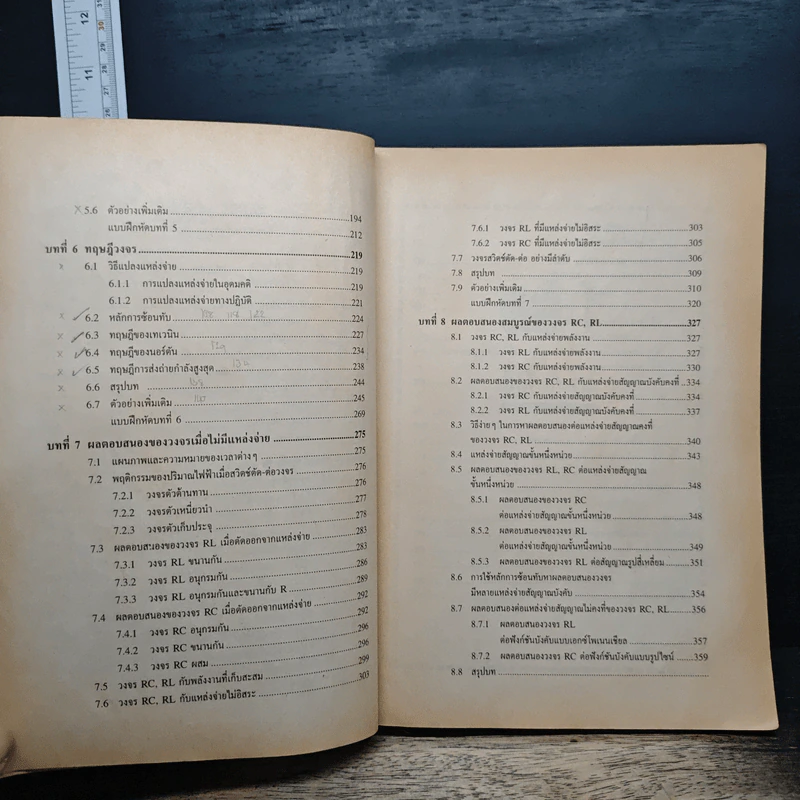 12
30
29
28
11
27
26
×5.6 ตัวอย่างเพิ่มเติม 194
แบบฝึกหัดบทที่ 5 212
บทที่ 6 ทฤษฎีวงจร 219
× 6.1 วิธีแปลงแหล่งจ่าย 219
6.1.1 การแปลงแหล่งจ่ายในอุดมคติ 219
6.1.2 การแปลงแหล่งจ่ายทางปฏิบัติ 221
× ✓ 6.2 หลักการซ้อนทับ 224
× ✓ 6.3 ทฤษฎีของเทเวนิน 227
× ✓ 6.4 ทฤษฎีของนอร์ตัน 234
× ✓ 6.5 ทฤษฎีการส่งถ่ายกำลังสูงสุด 238
× 6.6 สรุปบท 244
× 6.7 ตัวอย่างเพิ่มเติม 245
แบบฝึกหัดบทที่ 6 269
บทที่ 7 ผลตอบสนองของวงจรเมื่อไม่มีแหล่งจ่าย 275
7.1 แผนภาพและความหมายของเวลาต่างๆ 275
7.2 พฤติกรรมของปริมาณไฟฟ้าเมื่อสวิตช์ตัด-ต่อวงจร 276
7.2.1 วงจรตัวต้านทาน 276
7.2.2 วงจรตัวเหนี่ยวนำ 277
7.2.3 วงจรตัวเก็บประจุ 278
7.3 ผลตอบสนองของวงจร RL เมื่อตัดออกจากแหล่งจ่าย 283
7.3.1 วงจร RL ขนานกัน 283
7.3.2 วงจร RL อนุกรมกัน 286
7.3.3 วงจร RL อนุกรมกันและขนานกับ R 289
7.4 ผลตอบสนองของวงจร RC เมื่อตัดออกจากแหล่งจ่าย 292
7.4.1 วงจร RC อนุกรมกัน 292
7.4.2 วงจร RC ขนานกัน 296
7.4.3 วงจร RC ผสม 296
7.5 วงจร RC, RL กับพลังงานที่เก็บสะสม 299
7.6 วงจร RC, RL กับแหล่งจ่ายไม่อิสระ 303
7.6.1 วงจร RL ที่มีแหล่งจ่ายไม่อิสระ 303
7.6.2 วงจร RC ที่มีแหล่งจ่ายไม่อิสระ 305
7.7 วงจรสวิตช์ตัด-ต่อ อย่างมีลำดับ 306
7.8 สรุปบท 309
7.9 ตัวอย่างเพิ่มเติม 310
แบบฝึกหัดบทที่ 7 320
บทที่ 8 ผลตอบสนองสมบูรณ์ของวงจร RC, RL 327
8.1 วงจร RC, RL กับแหล่งจ่ายพลังงาน 327
8.1.1 วงจร RL กับแหล่งจ่ายพลังงาน 327
8.1.2 วงจร RC กับแหล่งจ่ายพลังงาน 330
8.2 ผลตอบสนองของวงจร RC, RL กับแหล่งจ่ายสัญญาณบังคับคงที่ 334
8.2.1 วงจร RC กับแหล่งจ่ายสัญญาณบังคับคงที่ 334
8.2.2 วงจร RL กับแหล่งจ่ายสัญญาณบังคับคงที่ 337
8.3 วิธีง่ายๆ ในการหาผลตอบสนองต่อแหล่งจ่ายสัญญาณคงที่
ของวงจร RC, RL 340
8.4 แหล่งจ่ายสัญญาณขั้นหนึ่งหน่วย 343
8.5 ผลตอบสนองของวงจร RL, RC ต่อแหล่งจ่ายสัญญาณ
ขั้นหนึ่งหน่วย 348
8.5.1 ผลตอบสนองของวงจร RC
ต่อแหล่งจ่ายสัญญาณขั้นหนึ่งหน่วย 348
8.5.2 ผลตอบสนองของวงจร RL
ต่อแหล่งจ่ายสัญญาณขั้นหนึ่งหน่วย 349
8.5.3 ผลตอบสนองของวงจร RL ต่อสัญญาณรูปสี่เหลี่ยม 351
8.6 การใช้หลักการซ้อนทับหาผลตอบสนองวงจร
มีหลายแหล่งจ่ายสัญญาณบังคับ 354
8.7 ผลตอบสนองต่อแหล่งจ่ายสัญญาณไม่คงที่ของวงจร RC, RL 356
8.7.1 ผลตอบสนองวงจร RL
ต่อฟังก์ชันบังคับแบบเอกซ์โพเนนเชียล 357
8.7.2 ผลตอบสนองวงจร RC ต่อฟังก์ชันบังคับแบบรูปไซน์ 359
8.8 สรุปบท